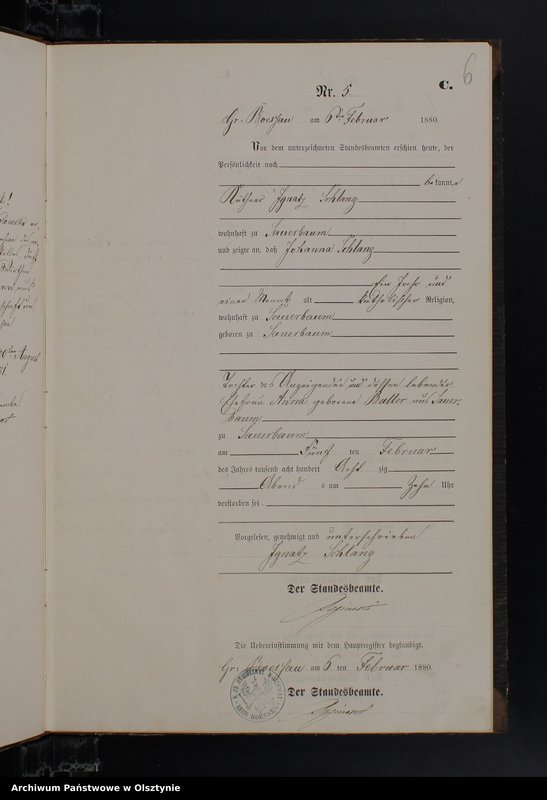 6
Nr. 5
C.
Gr. Boessau am 6ten Februar 1880.
Vor dem unterzeichneten Standesbeamten erschien heute, der
Persönlichkeit nach
bekannte
Käthner Ignatz Schlang
wohnhaft zu Sauerbaum
und zeigte an, daß Johanna Schlang
Ein Jahr und
einen Monat alt katholischer Religion,
wohnhaft zu Sauerbaum
geboren zu Sauerbaum
Tochter des Anzeigenden und dessen lebender
Ehefrau Anna geborene aus Sauer-
baum
zu Sauerbaum
am Fünf ten Februar
des Jahres tausend acht hundert Acht zig
Abend s um Zehn Uhr
verstorben sei.
Vorgelesen, genehmigt und unterschrieben
Ignatz Schlang
Der Standesbeamte.
Die Uebereinstimmung mit dem Hauptregister beglaubigt.
Gr. Boessau am 6 ten Februar 1880.
Der Standesbeamte.
Archiwum Państwowe w Olsztynie